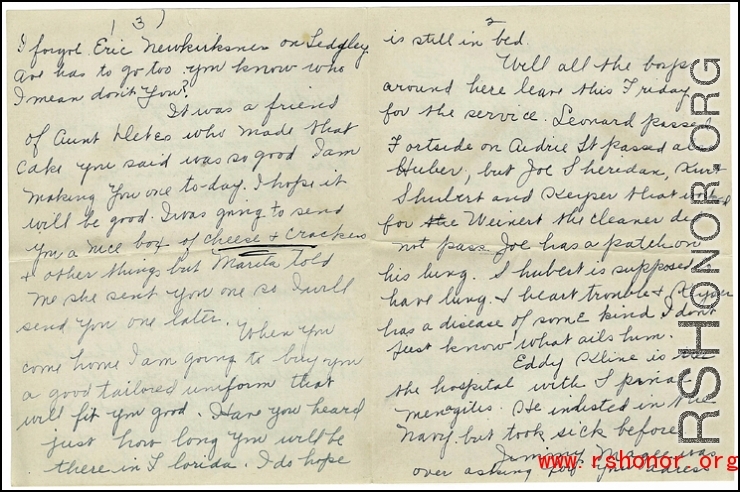 ( 3 )
I forgot Eric Newkirksner on Sedgley
Ave has to go too you know who
I mean don't you?
It was a friend
of Aunt Netes who made that
cake you said was so good I am
making you one to-day. I hope it
will be good. I was going to send
you a nice box of cheese & Crackers
& other things but Marita told
me she sent you one so I will
send you one later. When you
come home I am going to buy you
a good tailored uniform that
will fit you good. Have you heard
just how long you will be
there in Florida. I do hope
2
is still in bed.
Well all the boys
around here leave this Friday
for the service. Leonard passed
Fortside on Audrie St passed al
Huber, but Joe Sheridan, Kurt
Shubert and Keyper that
for the Weinert the cleaner di
not pass Joe has a patch on
his lung. Shubert is suppose
have lung & heart trouble &
has a disease of some kind I don't
just know what ails him.
Eddy Kline is
the hospital with Spina
mengitis. He indisted in the
Navy but took sick before
Jimmy was
over asking for your adress
RSHONOR.ORG
www.rshonor.org